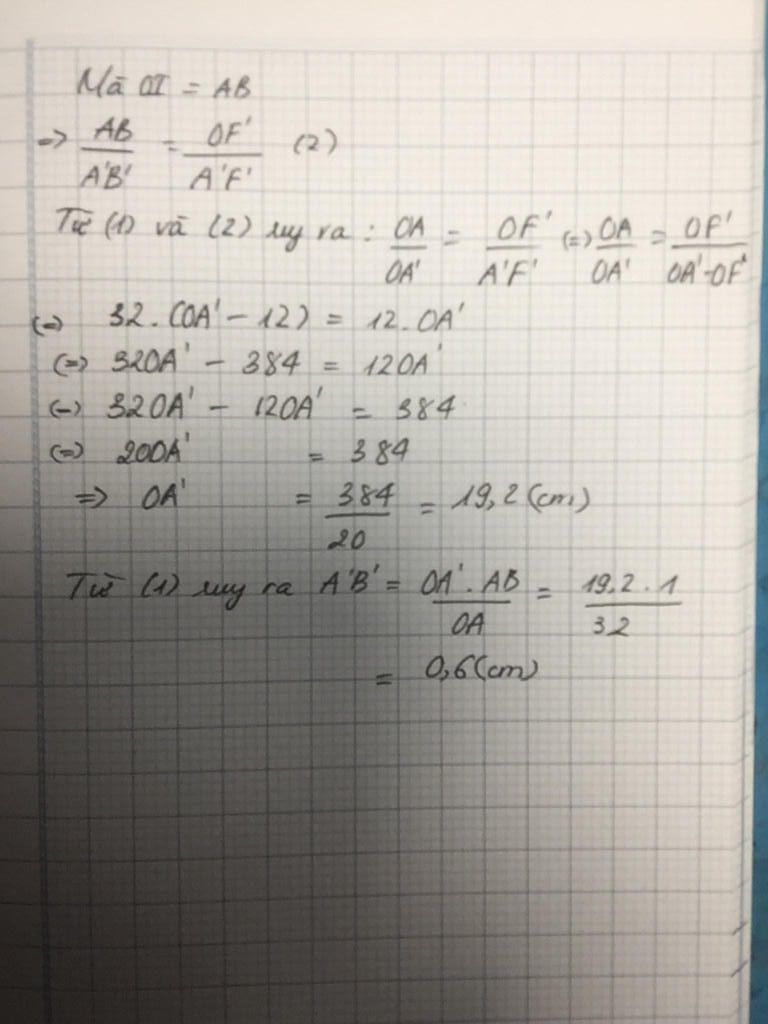 Mà OI = AB
=> AB/A'B' = OF'/A'F' (2)
Từ (1) và (2) suy ra : OA/OA' = OF'/A'F' (=) OA/OA' = OF'/OA'-OF'
(=) 32.(OA' - 12) = 12.OA'
(=) 32OA' - 384 = 12OA'
(=) 32OA' - 12OA' = 384
(=) 20OA' = 384
=> OA' = 384/20 = 19,2 (cm)
Từ (1) suy ra A'B' = OA'.AB/OA = 19,2.1/32
= 0,6 (cm)